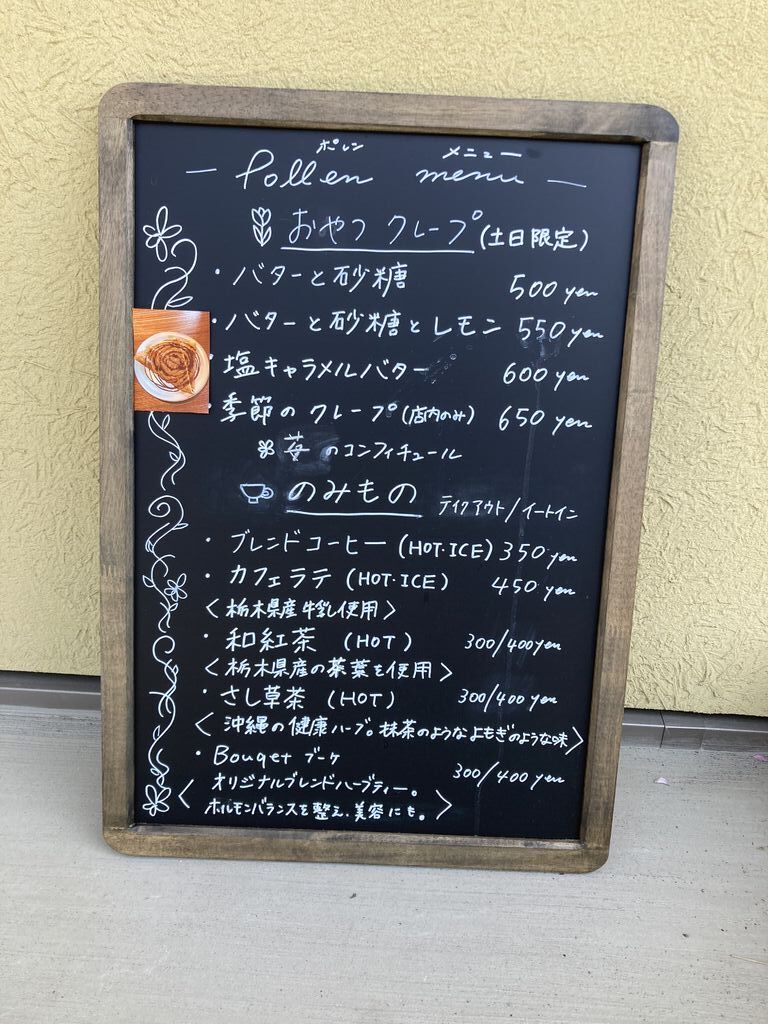 ポレン メニュー
— Pollen menu —
おやつ クレープ (土日限定)
・バターと砂糖 500 yen
・バターと砂糖とレモン 550 yen
・塩キャラメルバター 600 yen
・季節のクレープ(店内のみ) 650 yen
苺のコンフィチュール
のみもの テイクアウト/イートイン
・ブレンドコーヒー (HOT・ICE) 350 yen
・カフェラテ (HOT・ICE) 450 yen
〈栃木県産牛乳使用〉
・和紅茶 (HOT) 300/400yen
〈栃木県産の茶葉を使用〉
・さし草茶 (HOT) 300/400 yen
〈沖縄の健康ハーブ。抹茶のようなよもぎのような味〉
・Bouqet ブーケ 300/400 yen
〈オリジナルブレンドハーブティー。
ホルモンバランスを整え、美容にも。〉